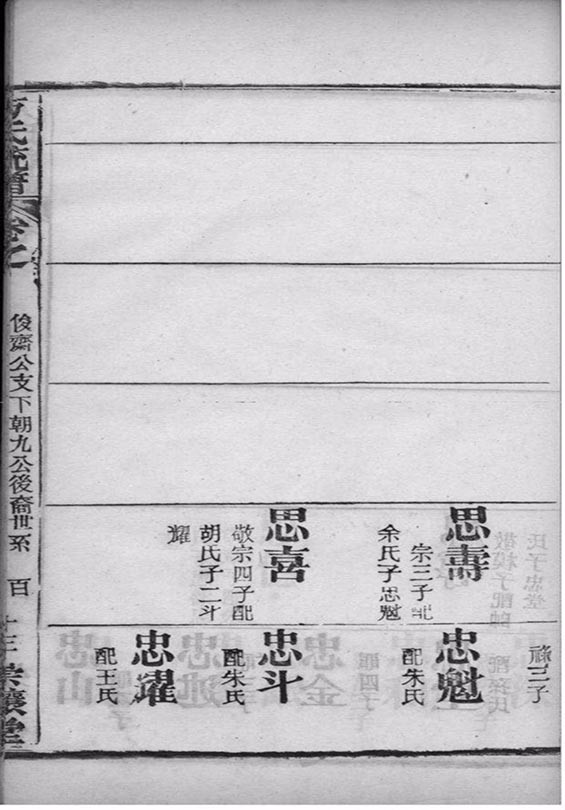 思壽
宗三子配
余氏子忠魁
思喜
敬宗四子配
胡氏子二斗
耀
祿三子
忠魁
配朱氏
忠斗
配朱氏
忠耀
配王氏
氏統譜
卷之
俊齋公支下朝九公後裔世系
百